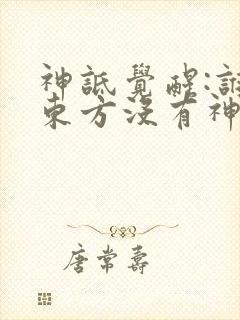 神詆覺醒:誰
東方沒有神
唐常壽